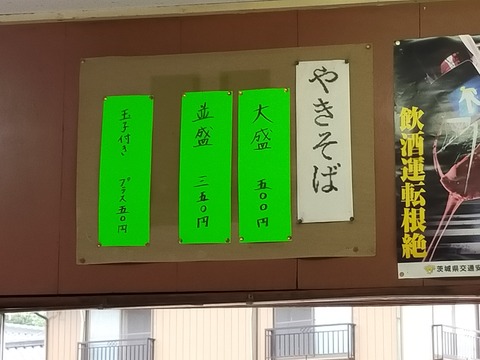 やきそば
大盛 五〇〇円
並盛 三五〇円
玉子付き プラス五〇円
飲酒運転根絶
茨城県交通安